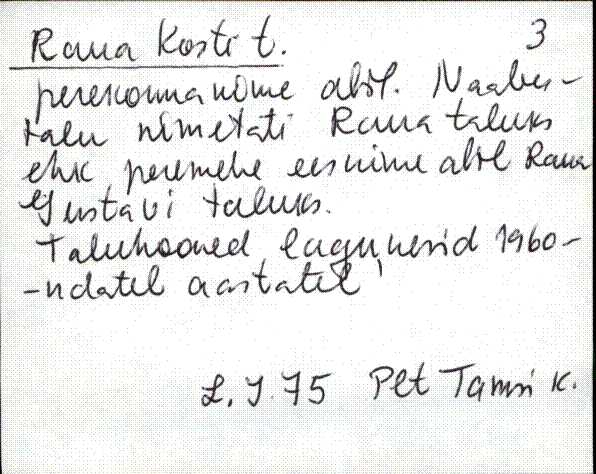 Raua Kosti t. 3
perekonnanime abil. Naaber-
talu nimetati Raua taluks
ehk peremehe eesnime abil Raua
Gustavi taluks.
Taluhooned lagunesid 1960-
-ndatel aastatel
L. J. 75 Plt Tamsi k.